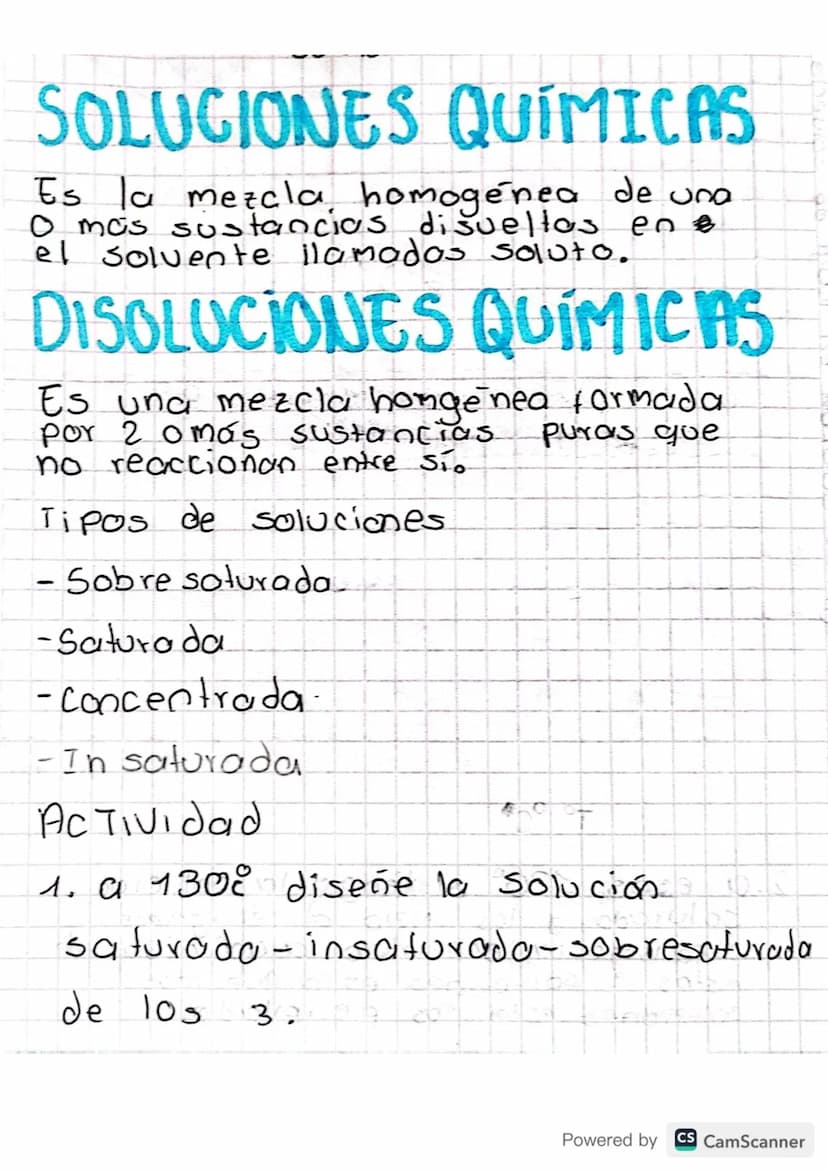 SOLUCIONES QUÍMICAS
Es la mezcla homogénea de una
o más sustancias disueltas en
el solvente llamadas soluto.
DISOLUCIONES QUÍMICAS
Es una mezcla hongénea formada
por 2 o más sustancias puras que
no reaccionan entre sí.
Tipos de soluciones
- Sobre saturada
- Saturada
- Concentrada
- In saturada
ACTIVIdad
1. a 130° diseñe la solución
saturada - insaturada - sobresaturada
de los 3.
Powered by CS CamScanner